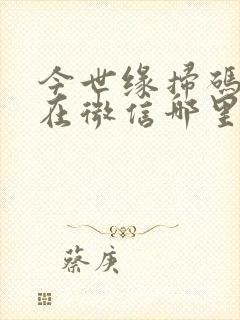 今世缘掃碼
在微信哪里
蔡庚